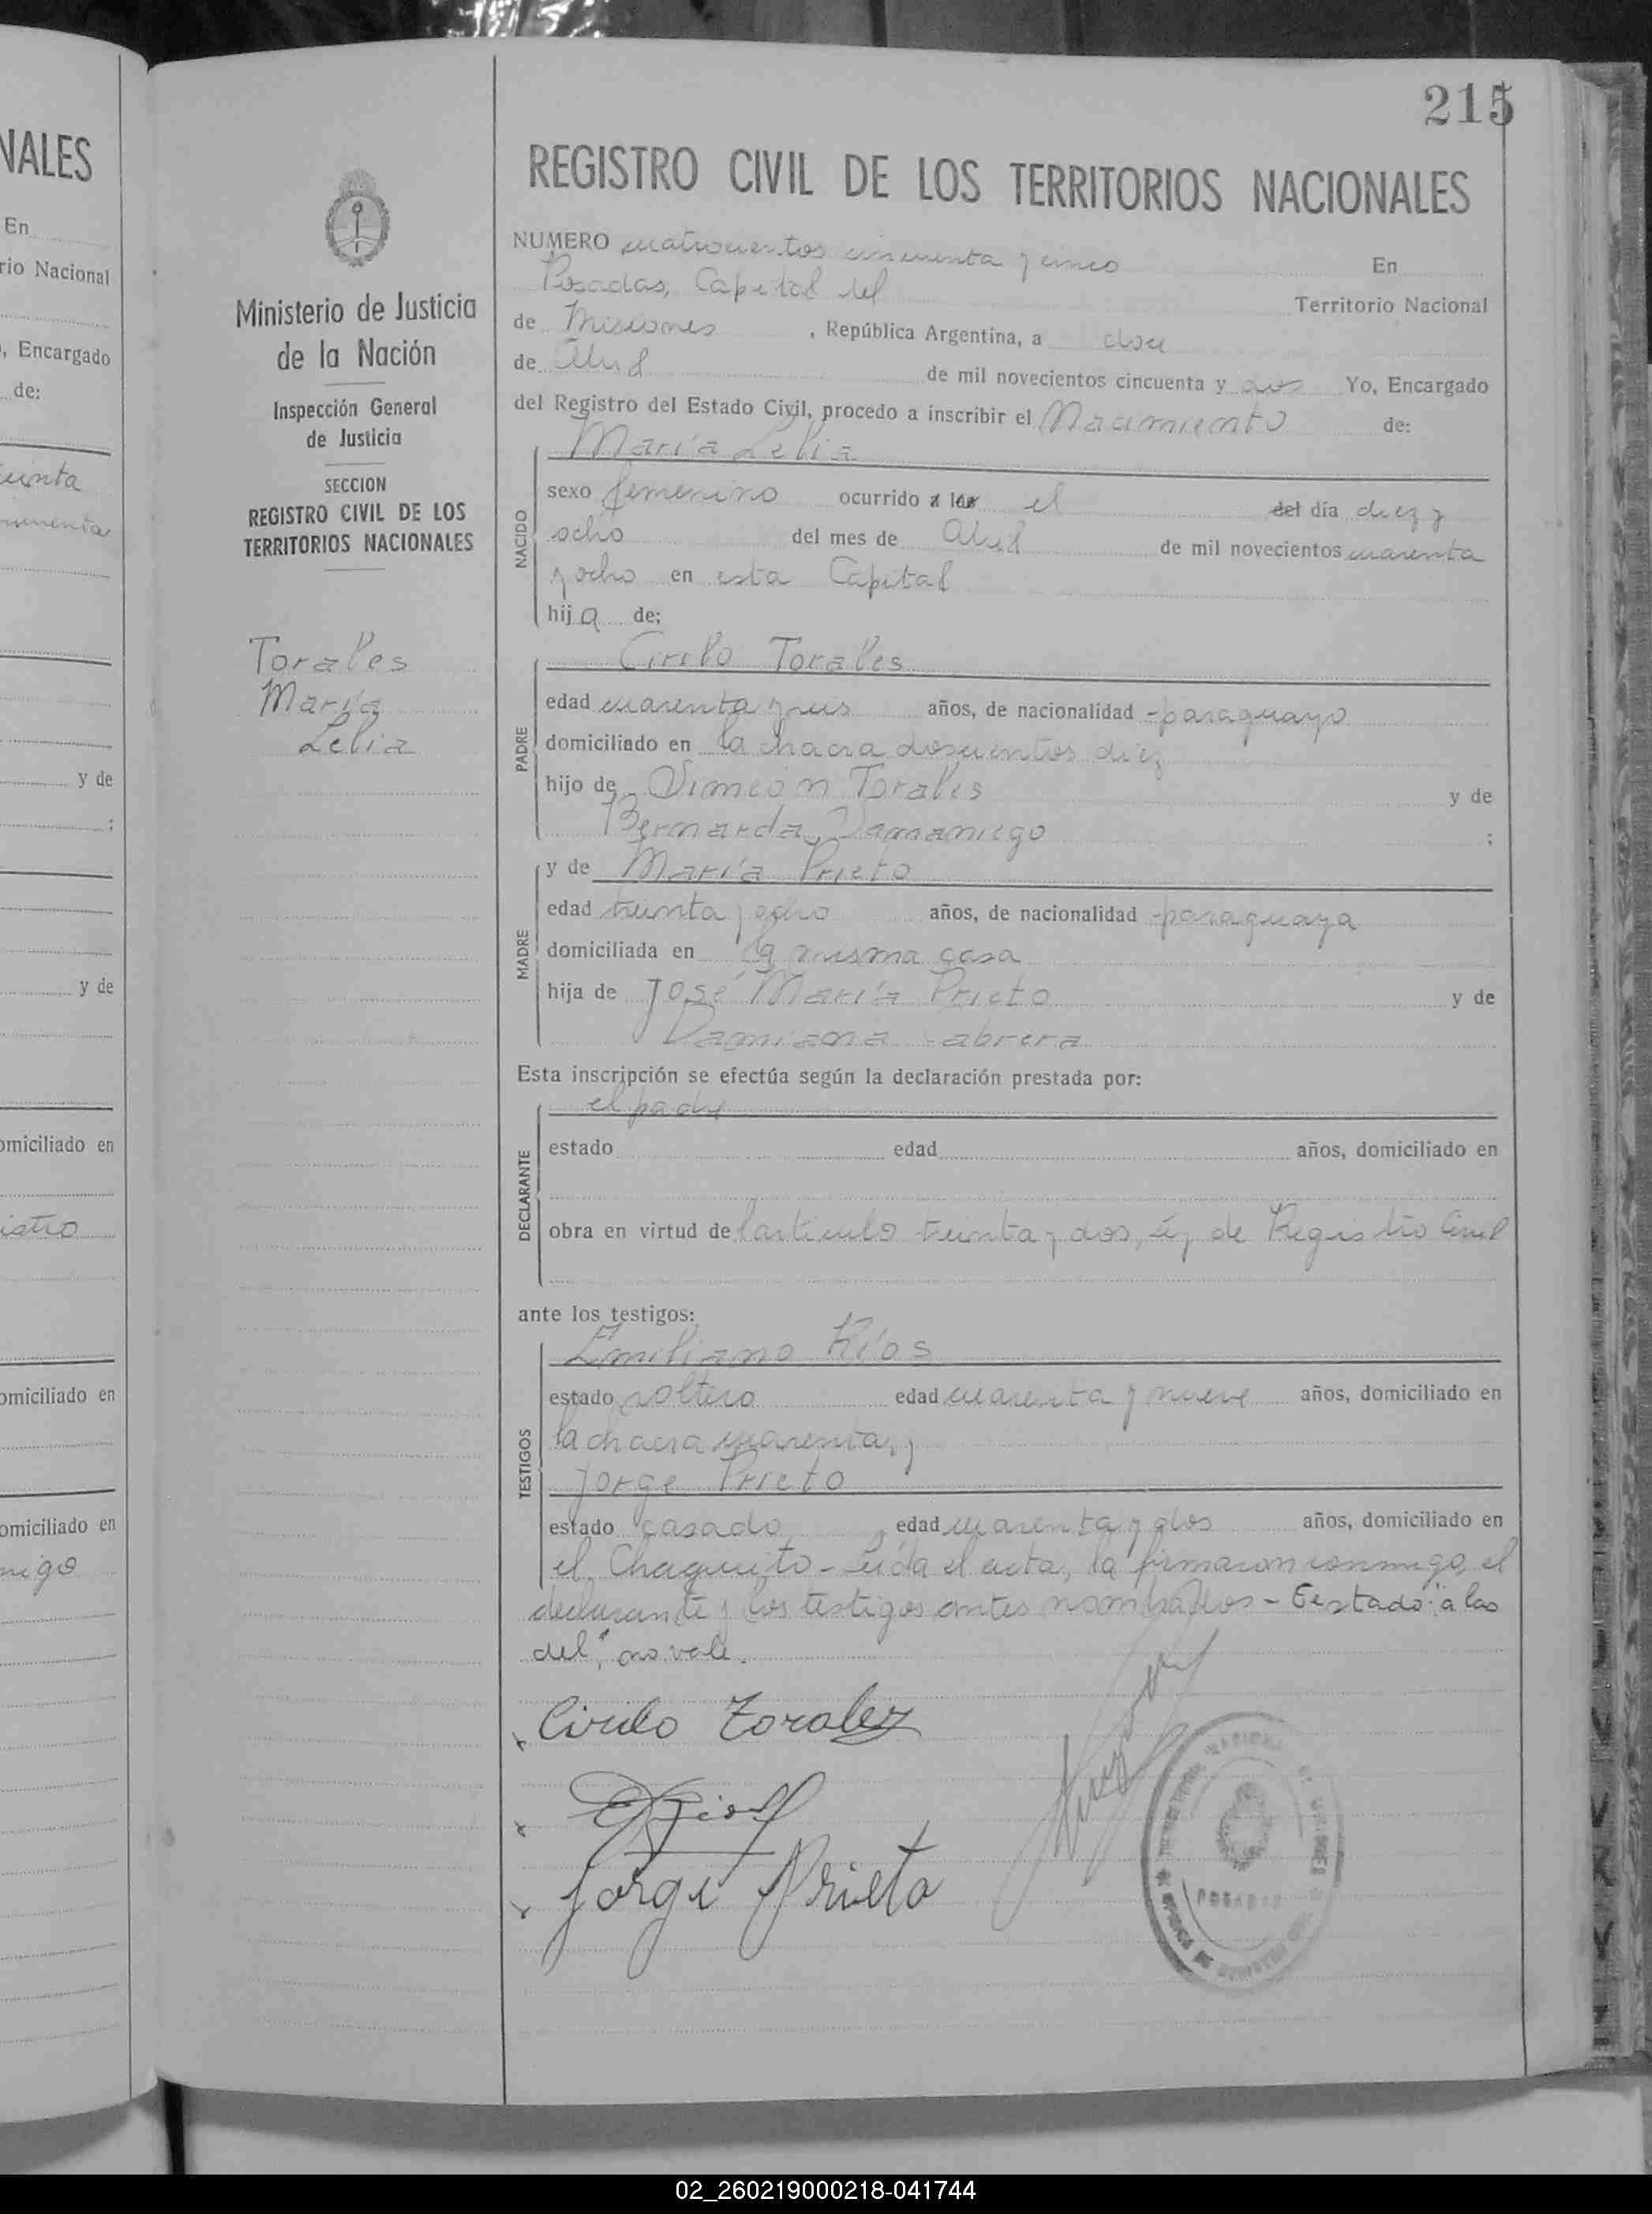 215
NALES
En
rio Nacional
, Encargado
de:
y de
;
y de
omiciliado en
istro
omiciliado en
omiciliado en
migo
Ministerio de Justicia
de la Nación
Inspección General
de Justicia
SECCION
REGISTRO CIVIL DE LOS
TERRITORIOS NACIONALES
Torales
María
Lelia
REGISTRO CIVIL DE LOS TERRITORIOS NACIONALES
NUMERO cuatrocientos cincuenta y cinco En
Posadas, Capital del Territorio Nacional
de Misiones , República Argentina, a doce
de Abril de mil novecientos cincuenta y dos Yo, Encargado
del Registro del Estado Civil, procedo a inscribir el Nacimiento de:
María Lelia
NACIDO
sexo femenino ocurrido a las el del día diez y
ocho del mes de Abril de mil novecientos cuarenta
y ocho en esta Capital
hija de;
Cirilo Torales
PADRE
edad cuarenta y años, de nacionalidad -paraguayo
domiciliado en la chacra doscientos diez
hijo de Simeón Torales y de
Bernarda Samaniego ;
y de María Prieto
MADRE
edad treinta y ocho años, de nacionalidad -paraguaya
domiciliada en la misma casa
hija de José María Prieto y de
Damiana Cabrera
Esta inscripción se efectúa según la declaración prestada por:
el padre
DECLARANTE
estado edad años, domiciliado en
obra en virtud del artículo treinta y dos, Ley de Registro Civil
ante los testigos:
Emiliano Ríos
TESTIGOS
estado soltero edad cuarenta y nueve años, domiciliado en
la chacra cuarenta, y
Jorge Prieto
estado casado, edad cuarenta y dos años, domiciliado en
el Chaquito - Leída el acta, la firmaron conmigo, el
declarante y los testigos antes nombrados - Testado: "a las
del", no vale.
Cirilo Toralez
E Rios
Jorge Prieto
POSADAS
02_260219000218-041744